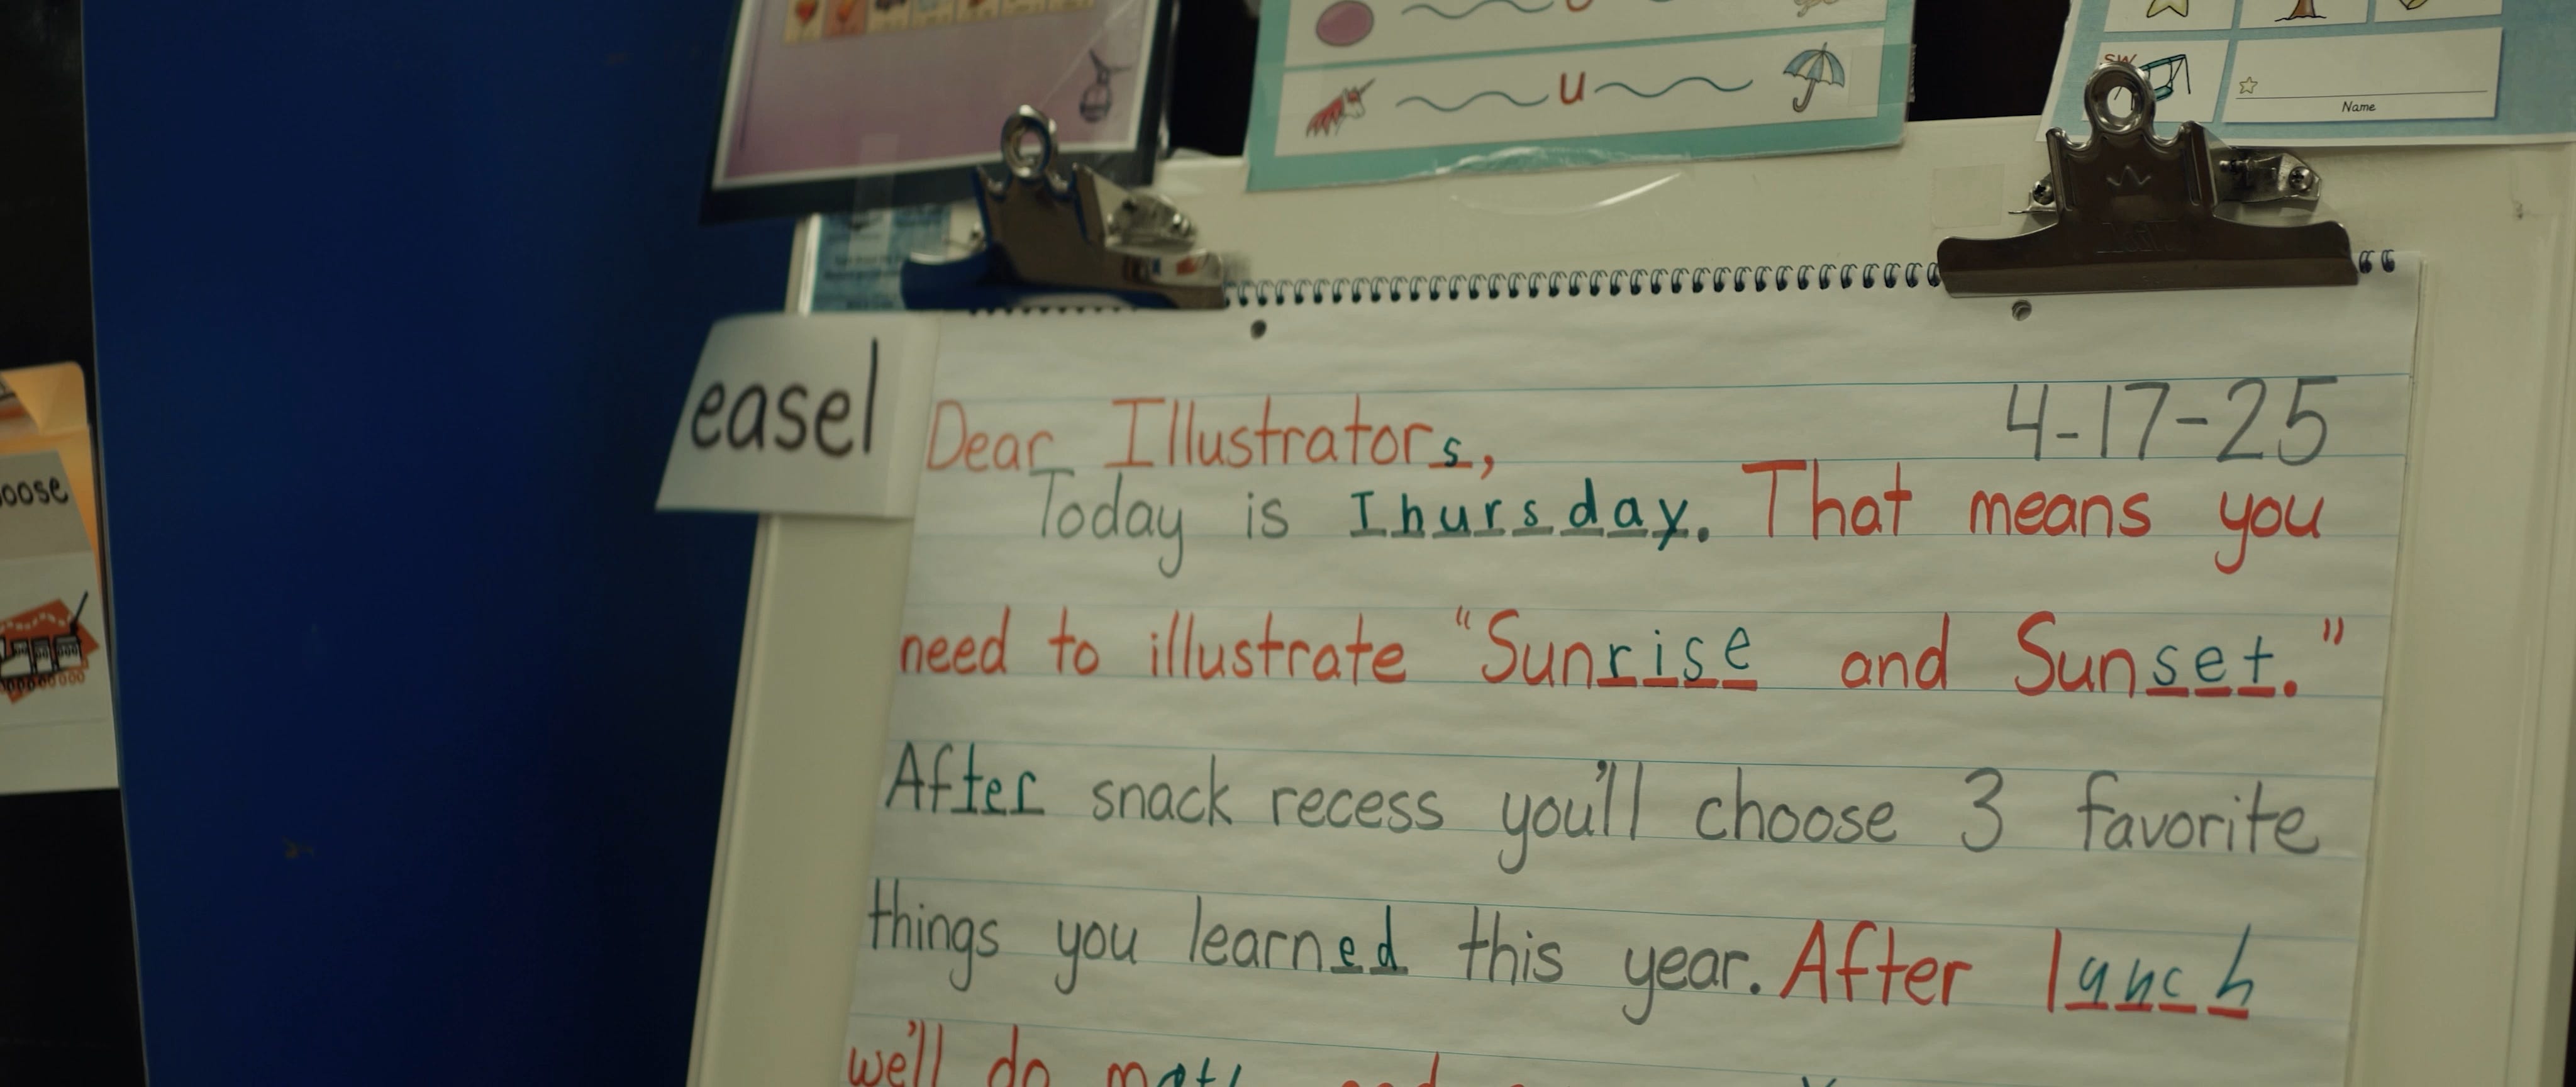 u
sw
Name
easel
oose
4-17-25
Dear Illustrators,
Today is Thursday. That means you
need to illustrate "Sunrise and Sunset."
After snack recess you'll choose 3 favorite
things you learned this year. After lunch
we'll do math and